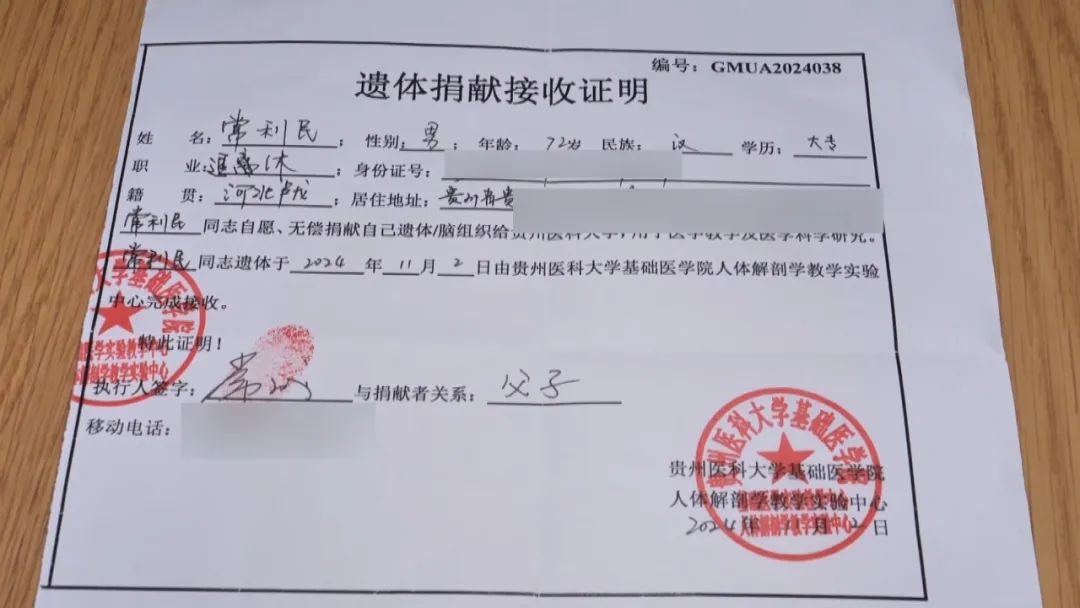 编号：GMUA2024038
遗体捐献接收证明
姓 名：常利民；性别：男；年龄：72岁 民族：汉 学历：大专
职 业：退离休；身份证号：
籍 贯：河北卢龙；居住地址：贵州省贵
常利民同志自愿、无偿捐献自己遗体/脑组织给贵州医科大学，用于医学教学及医学科学研究。
常利民同志遗体于2024年11月2日由贵州医科大学基础医学院人体解剖学教学实验
中心完成接收。
特此证明！
执行人签字：常 与捐献者关系：父子
移动电话：
贵州医科大学基础医学院
人体解剖学教学实验中心
2024年11月2日
贵州医科大学基础医学院
人体解剖学教学实验中心